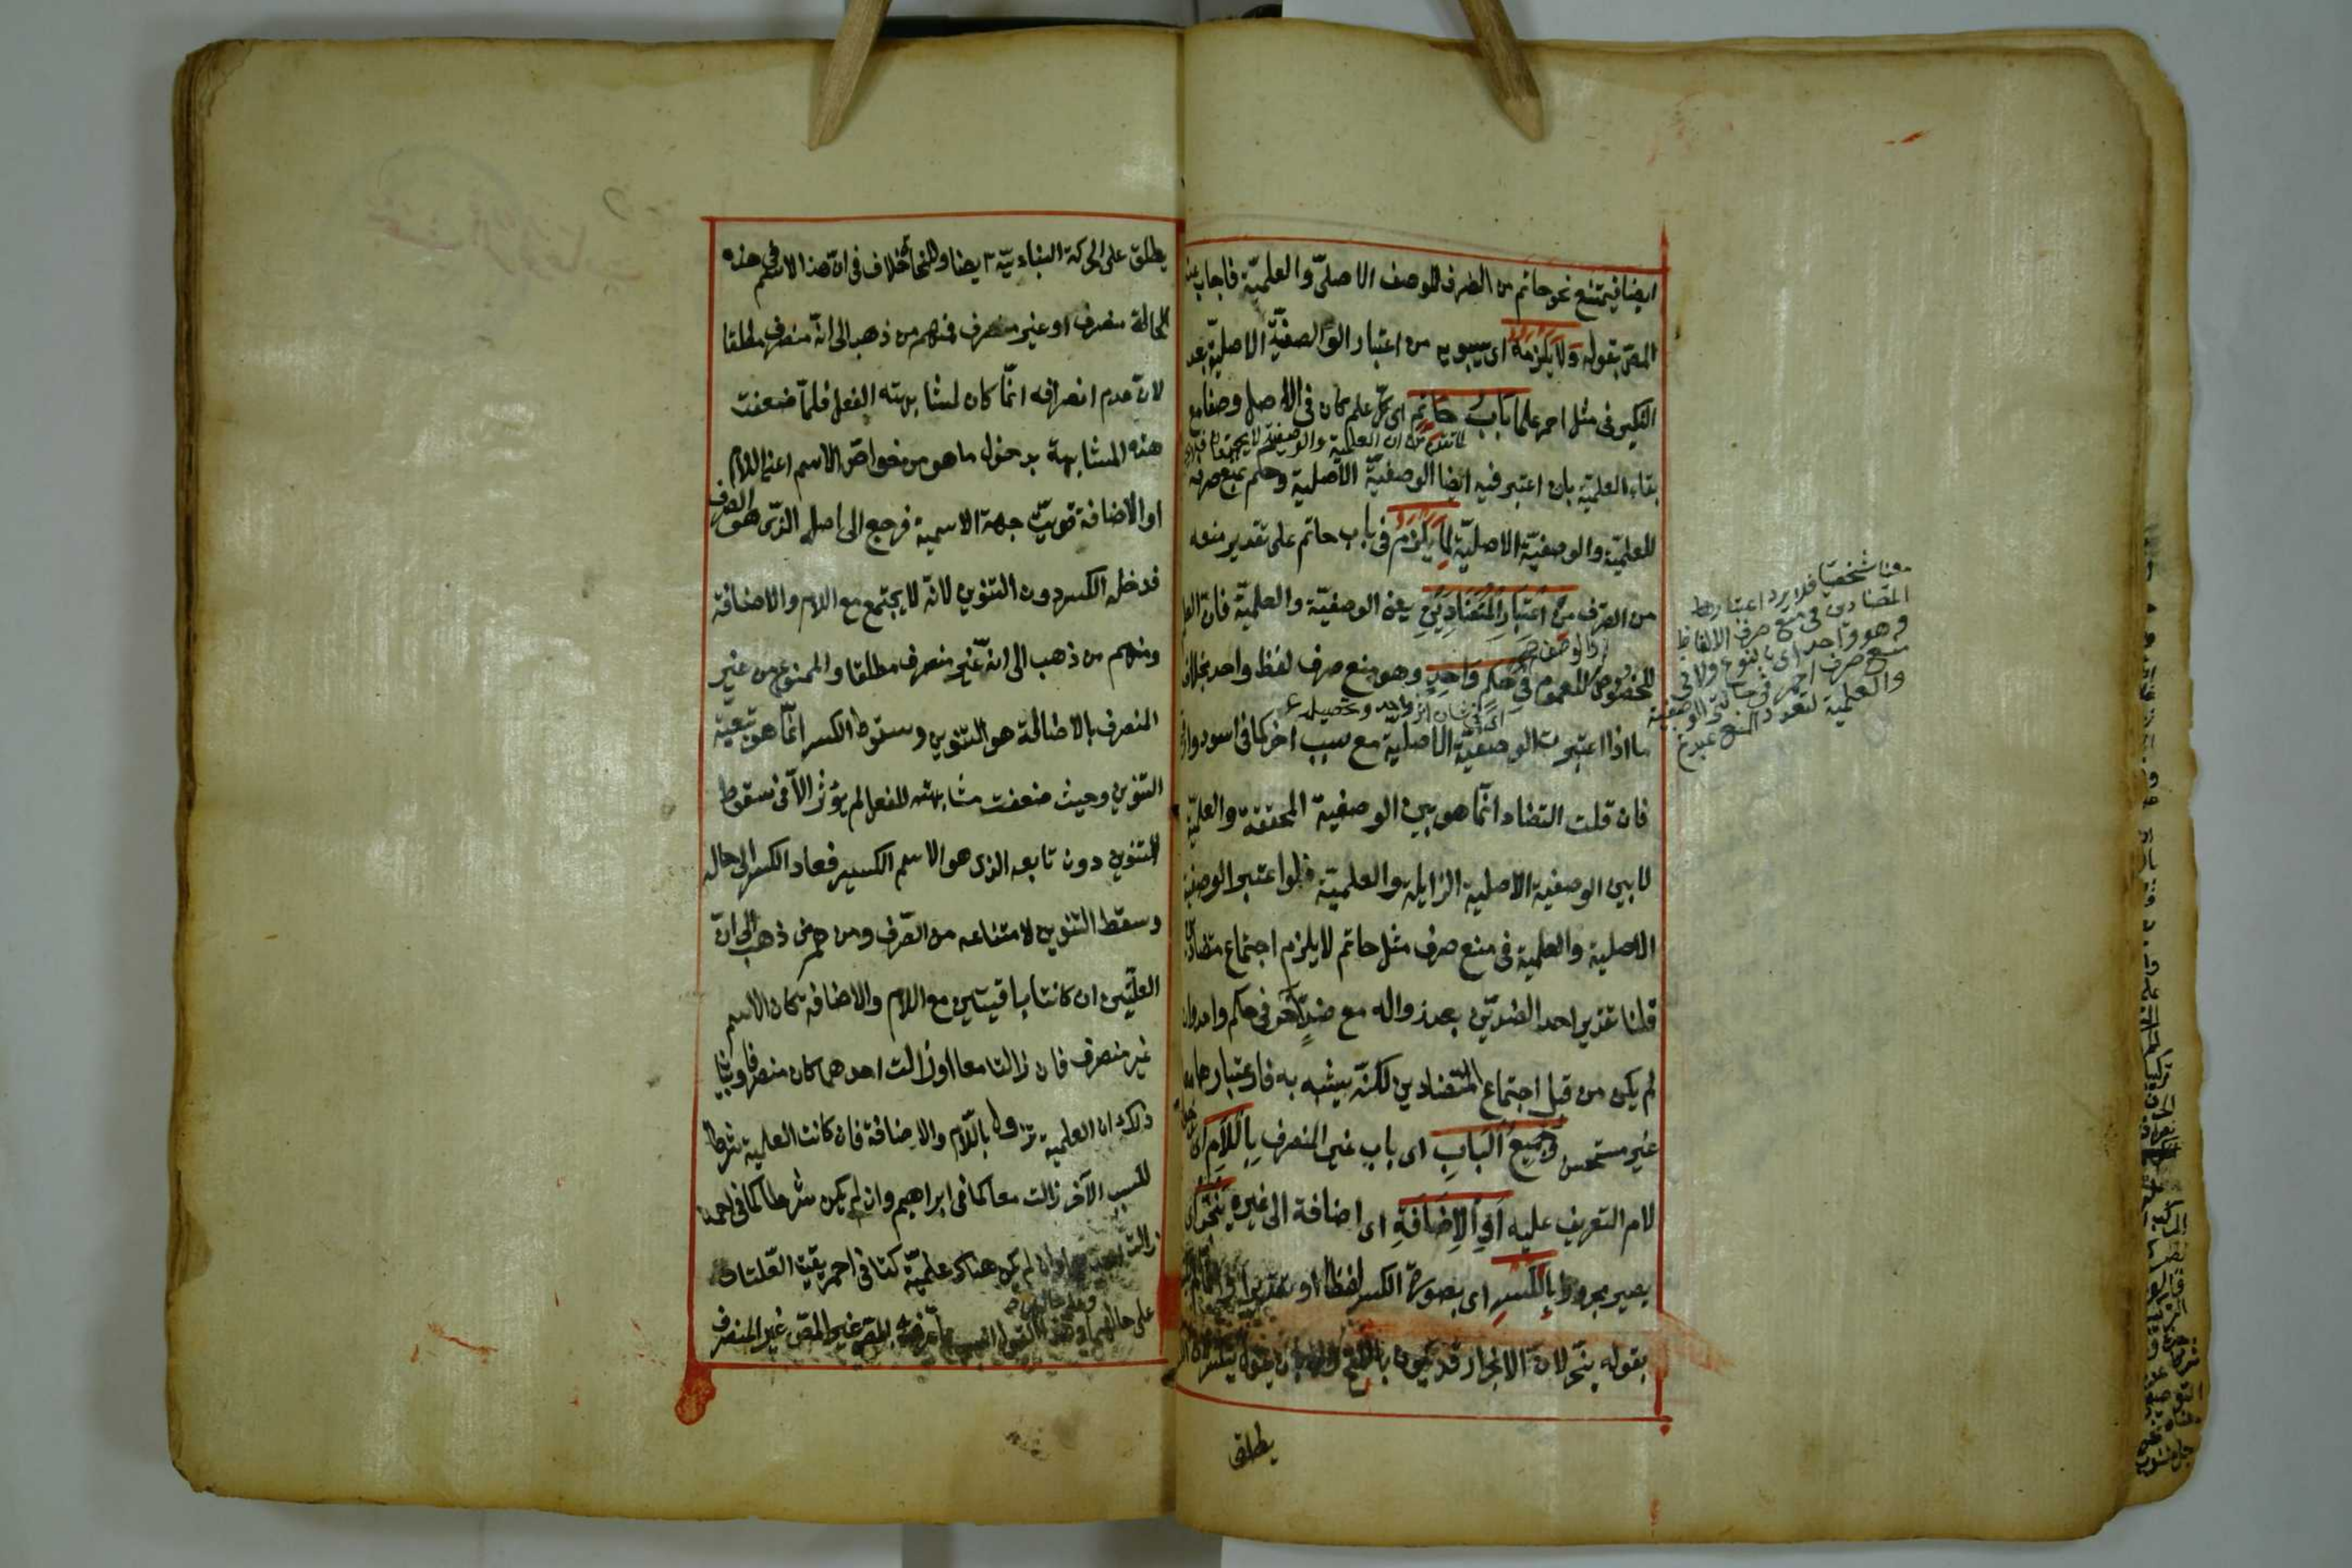 ايضا فيمتنع نحو حاتم من الصرف للوصف الاصلىّ والعلميّة فاجاب عنه
المصّ بقوله وَلاَ يَلزَمُهُ اى سيبويه من اعتبار الوالصفيّة الاصليّة بعد
التنكير فى مثل احمر علما بَابُ حَاتِمٍ اى كلّ علم كان فى الاصل وصفا مع
بقاء العلميّة بان اعتبر فيه ايضا الوصفيّة الاصلية وحكم بمنع صرفه
للعلميّة والوصفيّة الاصليّة لِمَا يَلْزَمُ فى باب حاتم على تقدير منعه
من الصّرف مِنْ اعْتِبَارِ الْمُتَضَادِيْنِ يعنى الوصفيّة والعلميّة فان العلم
للخصوص والوصف للعموم فِي حُكْمٍ وَاحِدٍ وهو منع صرف لفظ واحد بخلاف
ما اذا اعتبرت الوصفيّة الاصلية مع سبب اخر كما فى اسود وارقم
فان قلت التضاد انّما هو بين الوصفية المحققة والعلميّة
لا بين الوصفية الاصلية الزايلة والعلميّة فلو اعتبر الوصفية
الاصلية والعلمية فى منع صرف مثل حاتم لا يلزم اجتماع متضادين
قلنا تقدير احد الضدّين بعد زواله مع ضدّ آخر فى حكم واحد وان
لم يكن من قبل اجتماع المتضادين لكنّه يشبه به فاعتبارهما معا
غير مستحسن وَجَمِيعُ الْبَابِ اى باب غير المنصرف بِاللاَّمِ اى بدخول
لام التعريف عليه اَوِ الاِضَافَةِ اى اضافة الى غيره يَنْجَرُّ اى
يصير مجرورا بِالْكَسْرِ اى بصورة الكسر لفظا او تقديرا
بقوله ينجرّ لان الانجرار قد يكون بالفتح
لما تقدم من ان العلمية والوصفية لا يجتمعان
معنا شخصيّا فلا يرد اعتبارها
المتضادين فى منع صرف الالفاظ
وهو واحد اى بالنوع ولا فى
منع صرف احمر فى حالتى الوصفية
والعلمية لتعدد المنع
يطلق
يطلق على الحركة البنائيّة ايضا وللنحاة خلاف فى انّ هذا الاسم فى هذه
الحالة منصرف او غير منصرف فمنهم من ذهب الى انّه منصرف مطلقا
لانّ عدم انصرافه انّما كان لمشابهته الفعل فلمّا ضعفت
هذه المشابهة بدخول ما هو من خواصّ الاسم اعنى اللام
او الاضافة قويت جهة الاسمية فرجع الى اصله الذى هو الصرف
فدخله الكسر دون التنوين لانه لا يجتمع مع اللام والاضافة
ومنهم من ذهب الى انه غير منصرف مطلقا والممنوع من غير
المنصرف بالاصالة هو التنوين وسقوط الكسر انّما هو بتبعية
التنوين وحيث ضعفت مشابهته للفعل لم يؤثر الاّ فى سقوط
التنوين دون تابعه الذى هو الاسم الكسير فعاد الكسر الى حاله
وسقط التنوين لامتناعه من الصّرف ومنهم من ذهب الى انّ
العلّتين ان كانتا باقيتين مع اللام والاضافة كان الاسم
غير منصرف فان زالتا معا او زالت احدهما كان منصرفا وبيان
ذلك ان العلمية تزول باللّام والاضافة فان كانت العلمية شرطا
للسبب الآخر زالت معا كما فى ابراهيم وان لم يكن شرطا كما فى احمد
زالت وان لم يكن هناك علميّة كما فى احمر بقيت العّلتان
على حالهما وهذا القول انسب بما عرّف به المصّ غير المنصرف